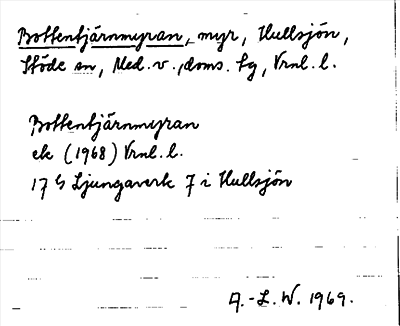 Bottentjärnmyran, myr, Hullsjön,
Stöde sn, Med. v., doms. tg, Vrnl. l.
Bottentjärnmyran
ek (1968) Vrnl. l.
17 G Ljungaverk 7 i Hullsjön
A.-L. W. 1969.